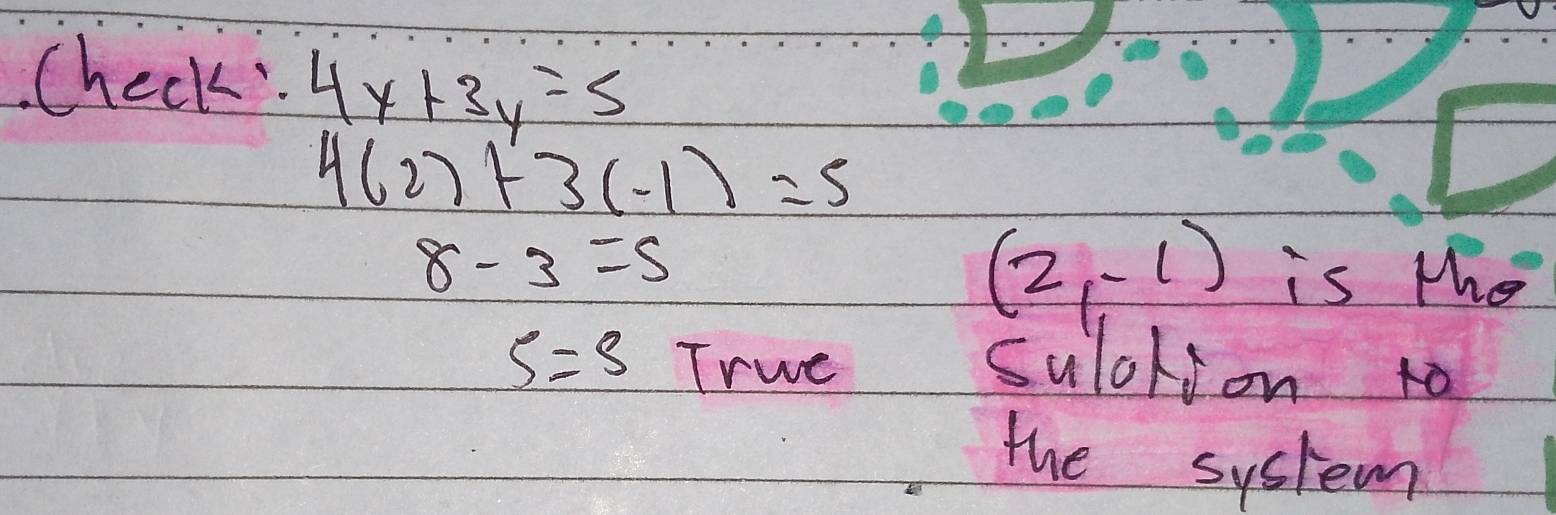 Check: 4x+3y=5
4(2)+3(-1)=5
8-3=5
5=5 True
(2,-1) is the
sulotion to
the system